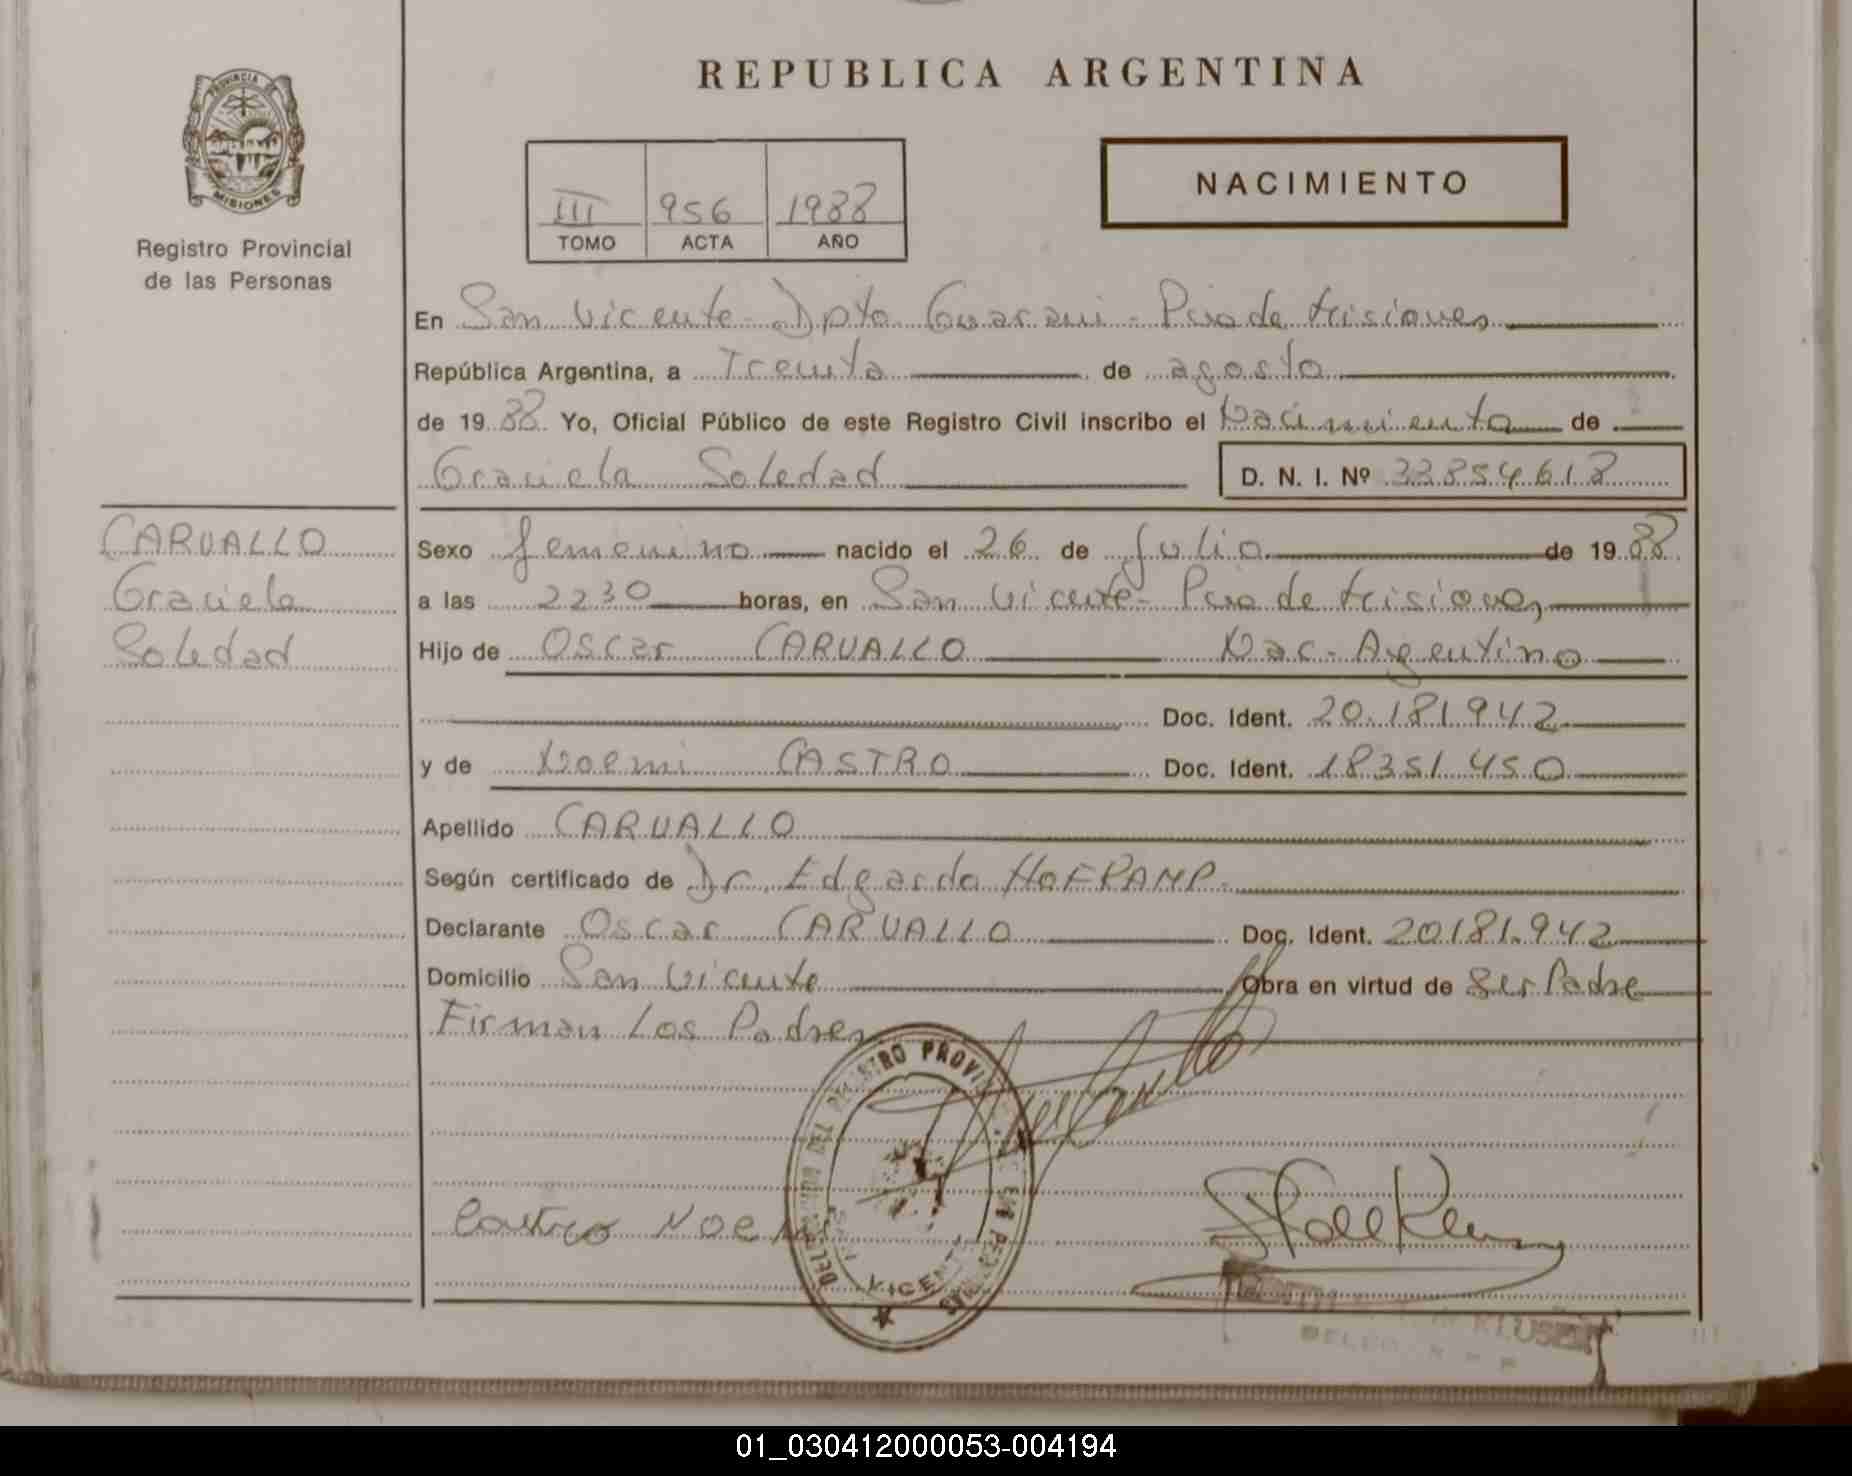 REPUBLICA ARGENTINA
PROVINCIA DE
MISIONES
Registro Provincial
de las Personas
III 956 1988
TOMO ACTA AÑO
NACIMIENTO
En San Vicente - Dpto Guarani - Pcia de Misiones
República Argentina, a Treinta de agosto
de 1988 Yo, Oficial Público de este Registro Civil inscribo el Nacimiento de
Graciela Soledad D. N. I. Nº 33854618
CARVALLO
Graciela
Soledad
Sexo femenino nacido el 26 de Julio de 1988
a las 2230 horas, en San Vicente - Pcia de Misiones
Hijo de Oscar CARVALLO Nac. Argentino
Doc. Ident. 20.181.942
y de Noemi CASTRO Doc. Ident. 18351.450
Apellido CARVALLO
Según certificado de Dr. Edgardo
Declarante Oscar CARVALLO Doc. Ident. 20181.942
Domicilio San Vicente Obra en virtud de Ser Padre
Firman Los Padres
Castro Noemi
VICENTE
01_030412000053-004194